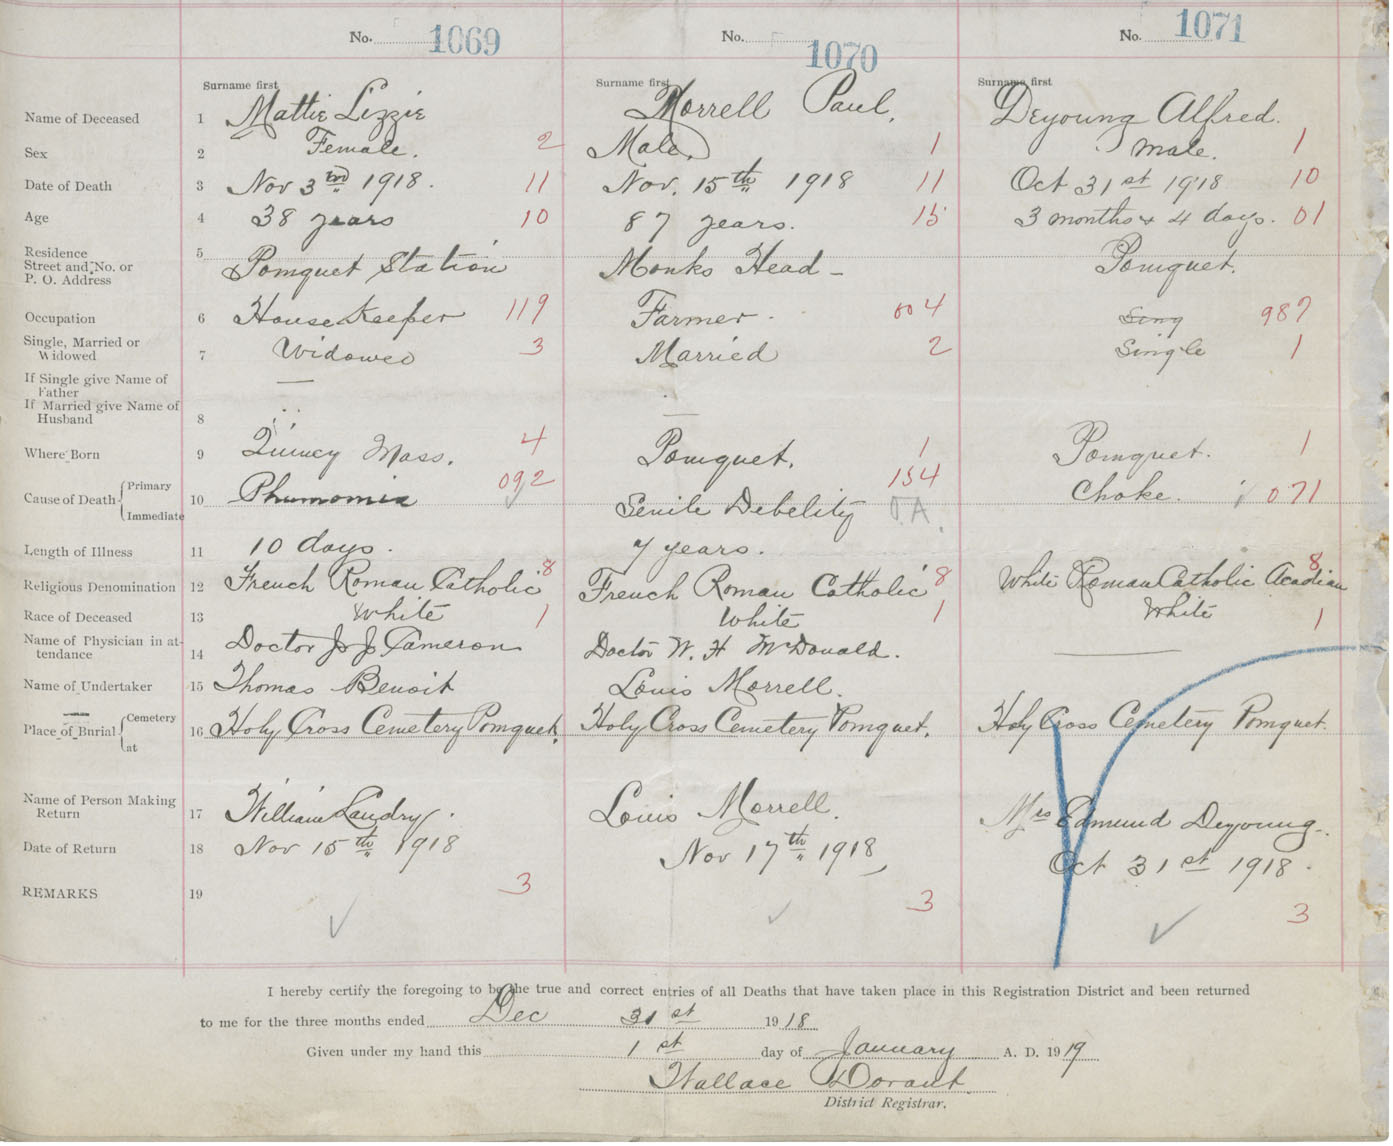 No. 1069 No. 1070 No. 1071
Surname first Surname first Surname first
Name of Deceased 1 Mattie Lizzie Morrell Paul. Deyoung Alfred.
Sex 2 Female. 2 Male. 1 male. 1
Date of Death 3 Nov 3rd 1918. 11 Nov. 15th 1918 11 Oct 31st 1918 10
Age 4 38 years 10 87 years. 15 3 months & 4 days. 01
Residence
Street and No. or
P. O. Address 5 Pomquet Station Monks Head - Pomquet.
Occupation 6 House Keeper 119 Farmer. 004 Sing 987
Single, Married or
Widowed 7 Widowed 3 Married 2 Single 1
If Single give Name of
Father
If Married give Name of
Husband 8
Where Born 9 Quincy Mass. 4 Pomquet. 1 Pomquet. 1
Cause of Death { Primary
Immediate 10 Phumomia 092 Senile Debelity 154 O.A. Choke. 071
Length of Illness 11 10 days. 7 years.
Religious Denomination 12 French Roman Catholic 8 French Roman Catholic 8 White Roman Catholic Acadian 8
Race of Deceased 13 White 1 White 1 White 1
Name of Physician in at-
tendance 14 Doctor J. J. Cameron Doctor W. H McDonald.
Name of Undertaker 15 Thomas Benoit Louis Morrell.
Place of Burial { Cemetery
at 16 Holy Cross Cemetery Pomquet. Holy Cross Cemetery Pomquet. Holy Cross Cemetery Pomquet.
Name of Person Making
Return 17 William Landry. Louis Morrell. Mrs Edmund Deyoung.
Date of Return 18 Nov 15th 1918 Nov 17th 1918 Oct 31st 1918.
REMARKS 19 3 3 3
I hereby certify the foregoing to be the true and correct entries of all Deaths that have taken place in this Registration District and been returned
to me for the three months ended Dec 31st 1918
Given under my hand this 1st day of January A. D. 1919
Wallace Dorant.
District Registrar.